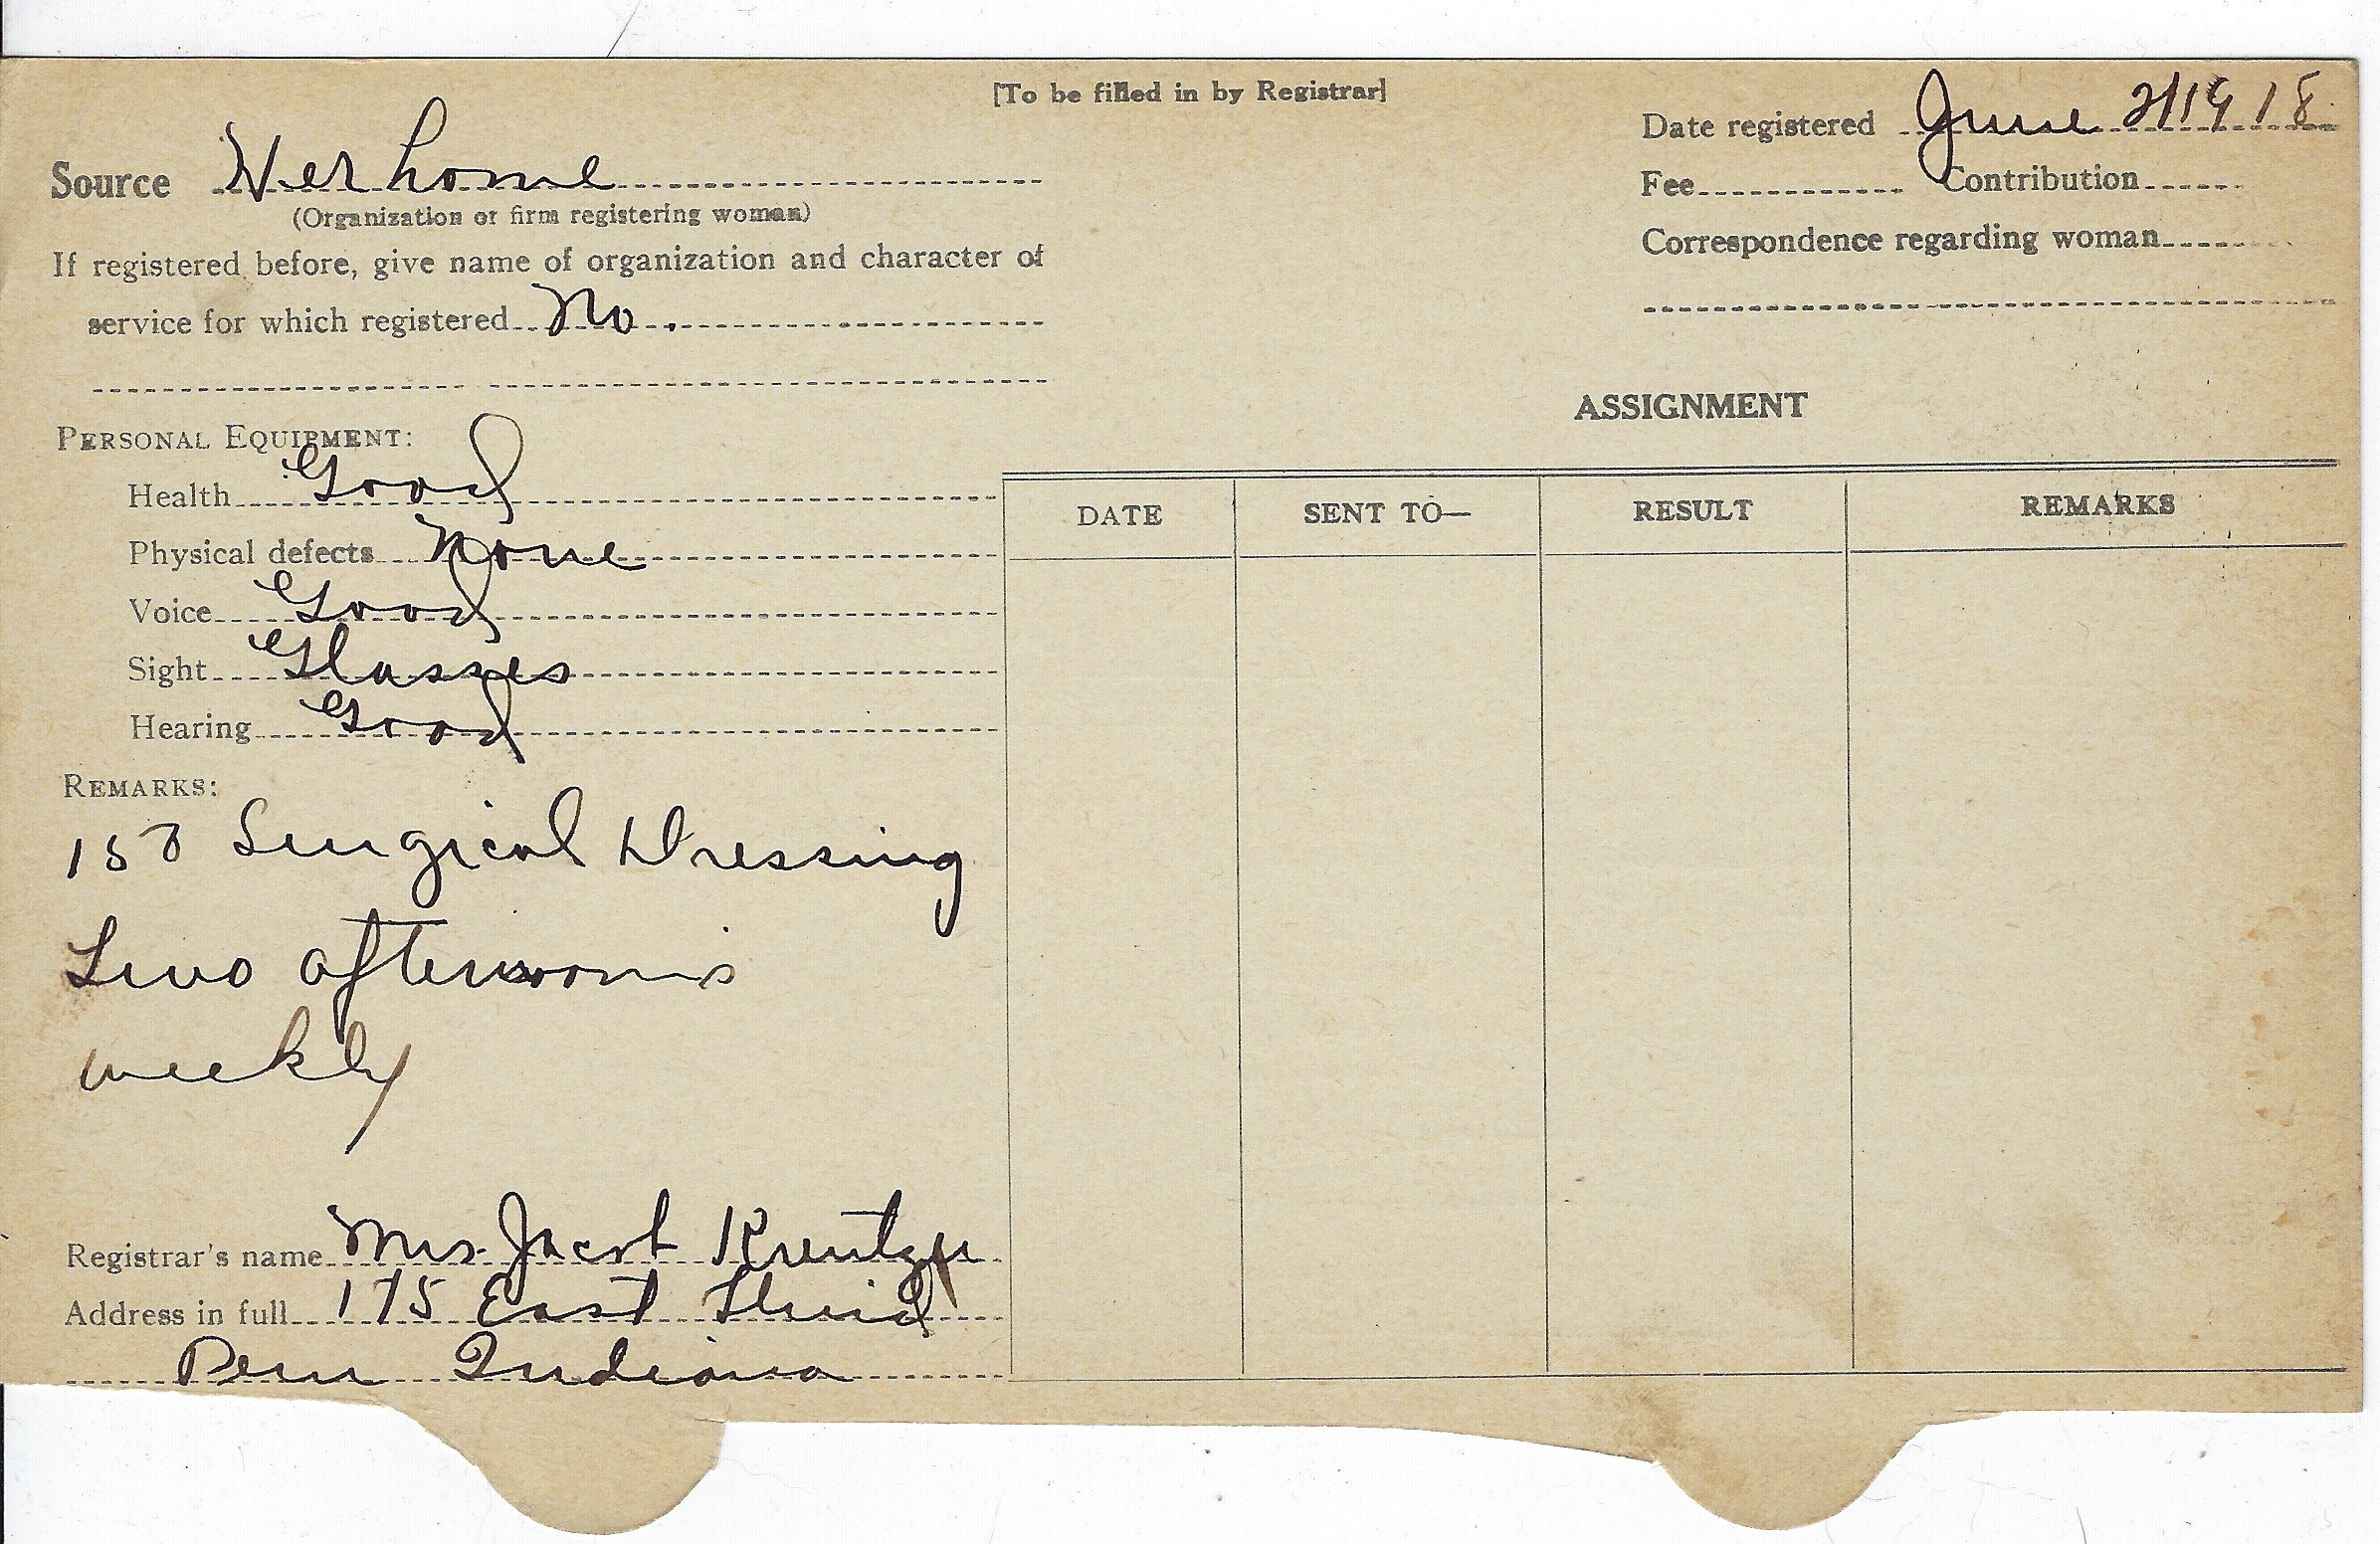 [To be filled in by Registrar]
Date registered June 21 1918
Source Her home
Fee Contribution
(Organization or firm registering woman)
Correspondence regarding woman
If registered before, give name of organization and character of
service for which registered No.
ASSIGNMENT
PERSONAL EQUIPMENT:
Health Good
DATE SENT TO— RESULT REMARKS
Physical defects None
Voice Good
Sight Glasses
Hearing Good
REMARKS:
Surgical Dressing
Two afternoons
weekly
Registrar's name Mrs. Jacob Kreutzer
Address in full 175 East Third
Peru Indiana